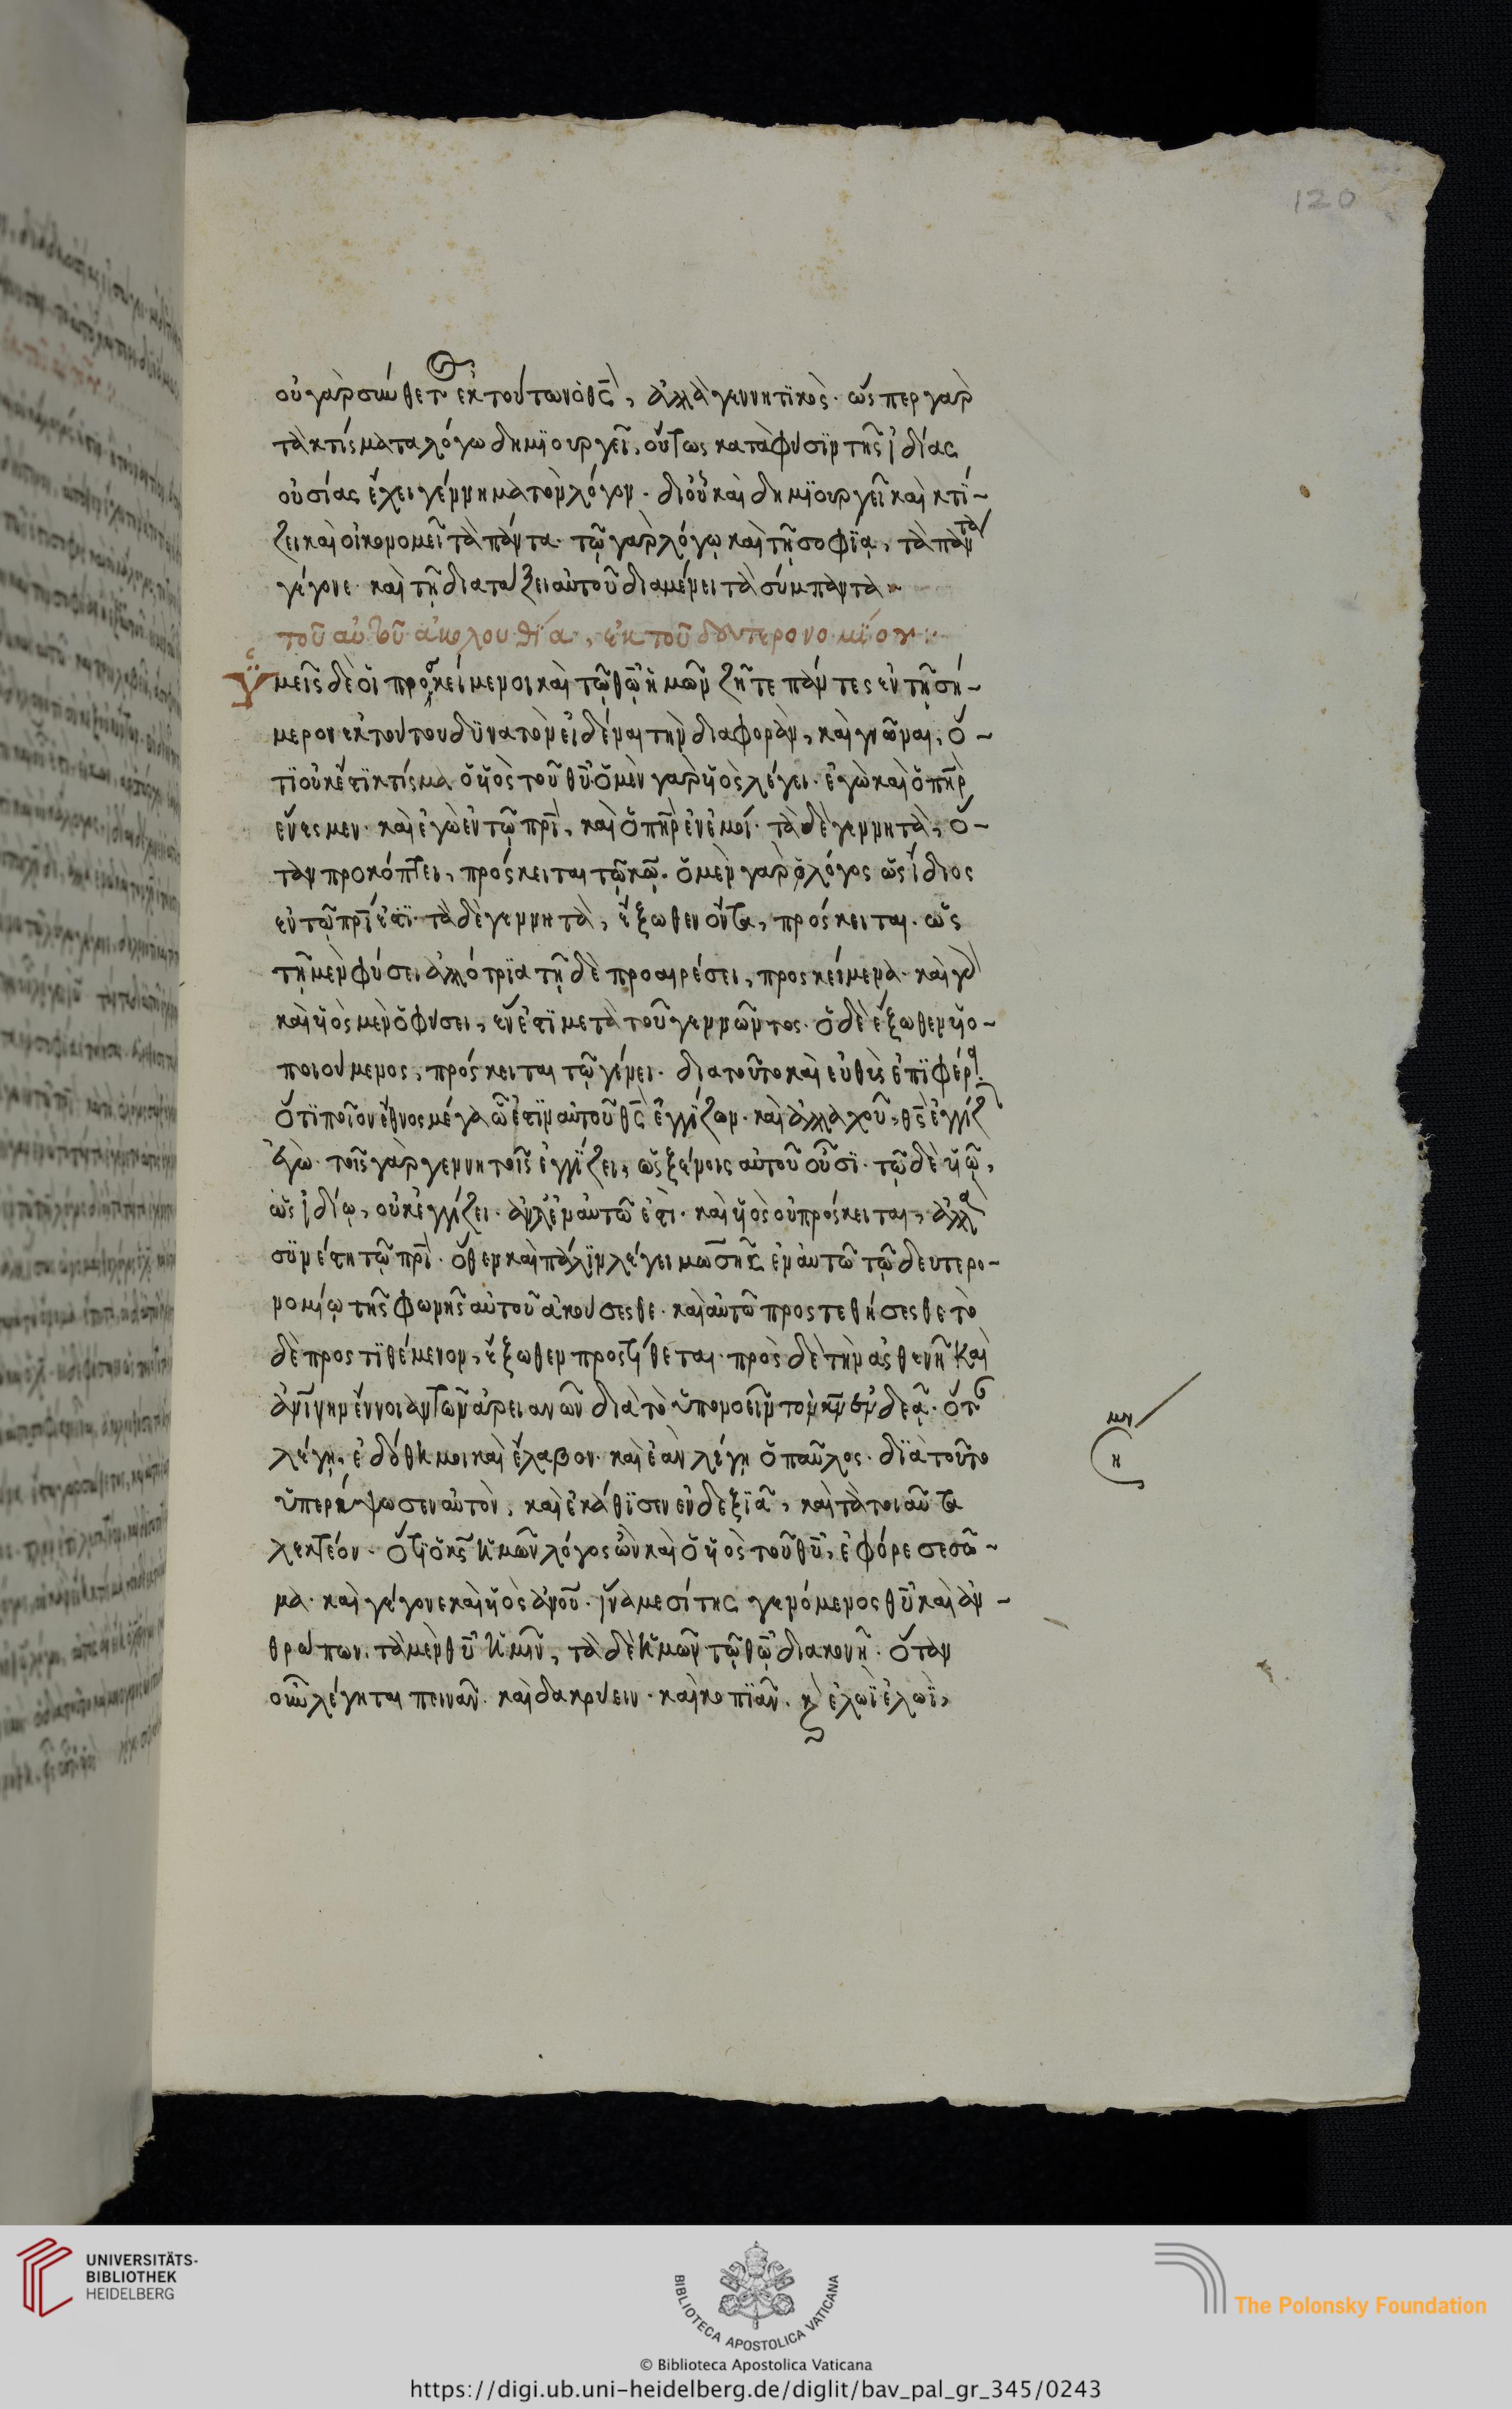 120
οὐ γὰρ σύνθετος ἐκ τούτων ὁ θς, ἀλλὰ γεννητϊκὸς. ὥσπερ γὰρ
τὰ κτίσματα λόγω δημϊουργεῖ, οὕτως κατὰ φύσϊν τῆς ἰδίας
οὐσίας ἔχει γέννημα τὸν λόγον. διοὗ καὶ δημϊουργεῖ καὶ κτϊ-
ζει καὶ οἰκονομεῖ τὰ πάντα. τῶ γὰρ λόγῳ καὶ τῆ σοφίᾳ, τὰ πάντα
γέγονε. καὶ τῆ διατάξει αὐτοῦ διαμένει τὰ σύμπαντα
τοῦ αὐτοῦ ἀκολουθία, ἐκ τοῦ δευτερονομίου:
Ὑμεῖς δὲ οἱ προσκείμενοι καὶ τῶ θῶ ἡμῶν ζῆτε πάντες ἐν τῆ σή-
μερον ἐκ τούτου δϋνατὸν εἰδέναι τὴν διαφορὰν, καὶ γνῶναι, ὅ-
τϊ οὐκ ἔστϊ κτίσμα ὁ ὑὸς τοῦ θῦ. ὁ μὲν γὰρ ὑὸς λέγει. ἐγὼ καὶ ὁ πὴρ
ἕν ἐσμεν. καὶ ἐγὼ ἐν τῶ πρὶ, καὶ ὁ πὴρ ἐν ἐμοί. τὰ δὲ γεννητὰ, ὅ-
ταν προκόπτει, πρόσκειται τῶ κῶ. ὁ μὲν γὰρ ὁ λόγος ὡς ἴδιος
ἐν τῶ πρί ἐστϊ. τὰ δὲ γεννητὰ, ἔξωθεν ὄντα, πρόσκειται. ὡς
τῆ μὲν φύσει ἀλλότρϊα τῆ δὲ προαιρέσει, προσκείμενα. καὶ γὰρ
καὶ ὑὸς μὲν ὁ φύσει, ἕν ἐστϊ μετὰ τοῦ γεννῶντος. ὁ δὲ ἔξωθεν ὑο-
ποιούμενος, πρόσκειται τῶ γένει. διατοῦτο καὶ εὐθὺς ἐπϊφέρει
ὅτϊ ποῖον ἔθνος μέγα ὧ ἐστϊν αὐτοῦ θς ἐγγίζων. καὶ ἀλλαχοῦ, θς ἐγγίζων
ἐγὼ. τοῖς γὰρ γεννητοῖς ἐγγίζει, ὡς ξένοις αὐτοῦ οὖσϊ. τῶ δὲ ὑῶ,
ὡς ἰδίῳ, οὐκ ἐγγίζει. ἀλλ' ἐν αὐτῶ ἐστὶ. καὶ ὑὸς οὐ πρόσκειται, ἀλλὰ
σϋνέστη τῶ πρὶ. ὅθεν καὶ πάλϊν λέγει μωσῆς ἐν αὐτῶ τῶ δευτερο-
νομίῳ τῆς φωνῆς αὐτοῦ ἀκούσεσθε. καὶ αὐτῶ προστεθήσεσθε τὸ
δὲ προστϊθέμενον, ἔξωθεν προστίθεται. πρὸς δὲ τὴν ἀσθενῆ καὶ
ἀνϊνην ἔννοιαν τῶν ἀρειανῶν διὰ τὸ ὑπονοεῖν τὸν κν ἐνδεᾶ. ὅταν
λέγῃ, ἐδόθη μοι καὶ ἔλαβον. καὶ ἐὰν λέγη ὁ παῦλος. δϊὰ τοῦτο
ὑπερήψωσεν αὐτὸν, καὶ ἐκάθϊσεν ἐν δεξϊᾶ, καὶ τὰ τοιαῦτα
λεκτέον. ὅτι ὁ κς ἡμῶν λόγος ὢν καὶ ὁ ὑὸς τοῦ θῦ, ἐφόρεσε σῶ-
μα. καὶ γέγονε καὶ ὑὸς ἀνοῦ. ἵνα μεσίτης γενόμενος θῦ καὶ ἀν-
θρώπων. τὰ μὲν θῦ ἡμῖν, τὰ δὲ ἡμῶν τῶ θῶ διακονῆ. ὅταν
οὖν λέγηται πεινᾶν. καὶ δακρύειν. καὶ κοπϊᾶν. καὶ ἐλωϊ ἐλωϊ,
UNIVERSITÄTS-
BIBLIOTHEK
HEIDELBERG
BIBLIOTECA APOSTOLICA VATICANA
The Polonsky Foundation
© Biblioteca Apostolica Vaticana
https://digi.ub.uni-heidelberg.de/diglit/bav_pal_gr_345/0243